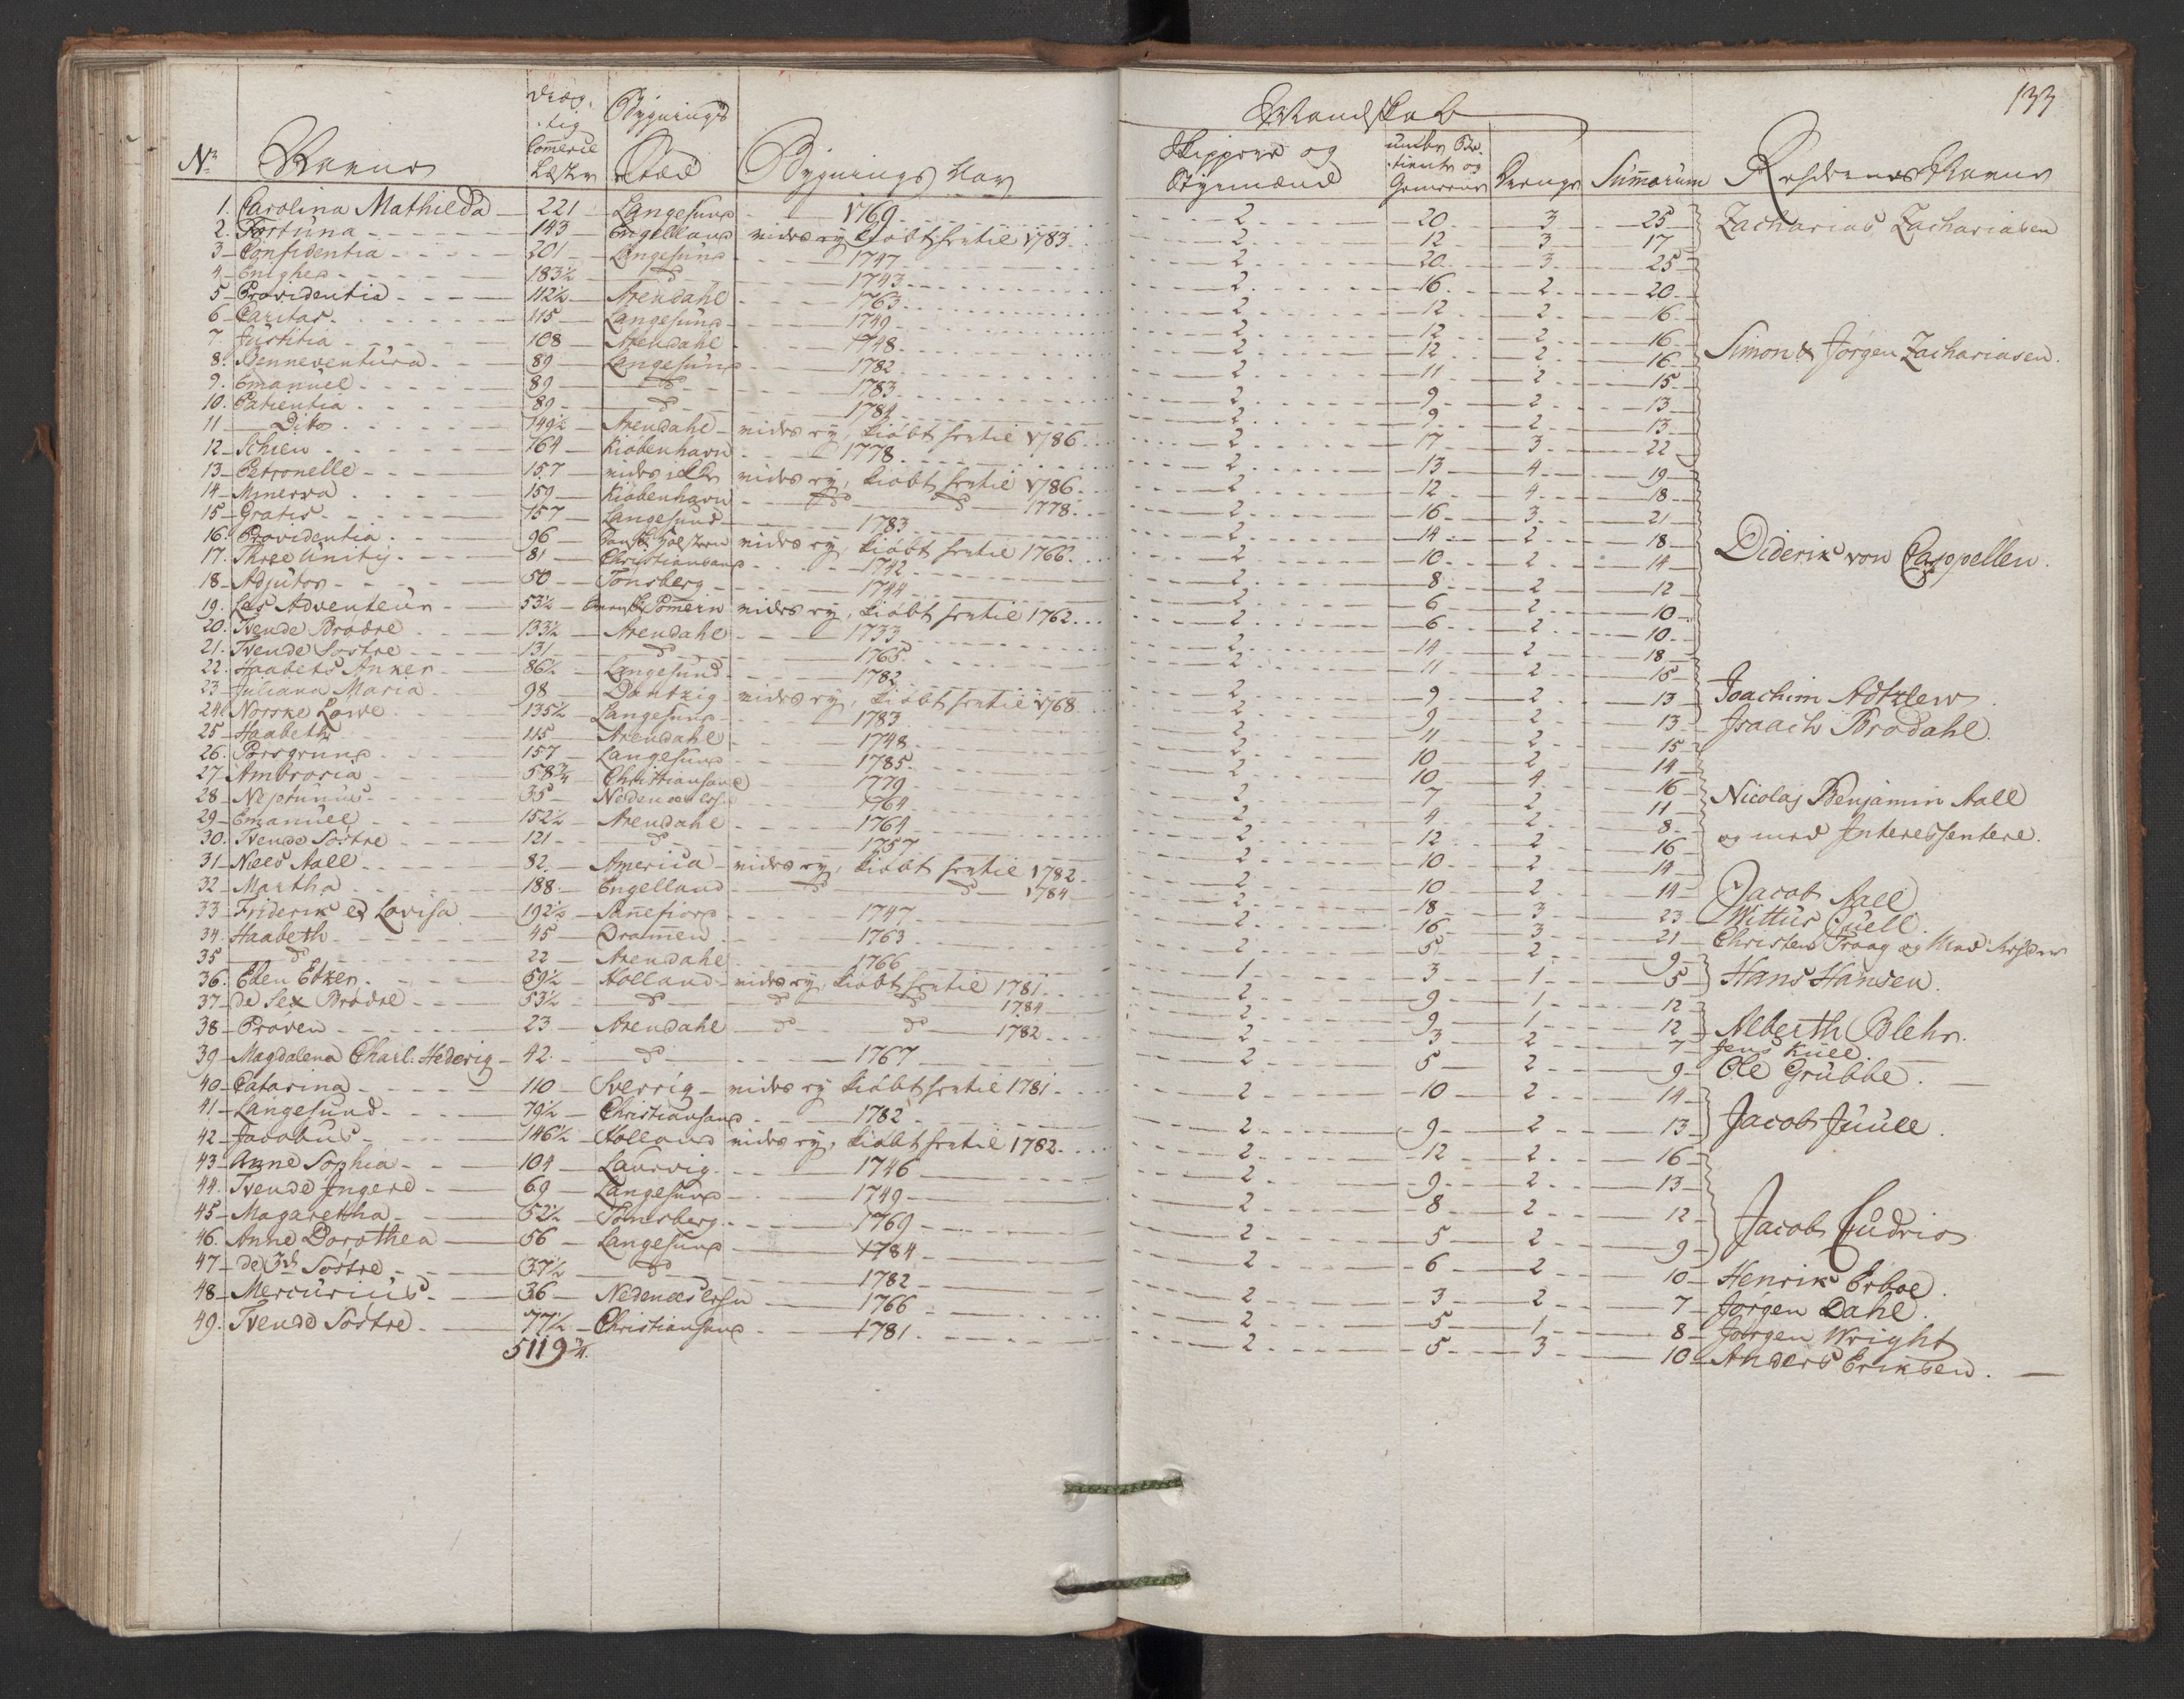 133
Mandskab
Nr Navne Dræg-tig Commerce Læster Bygnings Stæd Bygnings Aar Skippere og Styrmænd under Be-tiente og Gemeene Drenge Summarum Rehdernes Navne
1. Carolina Mathilda 221 Langesund 1769 2 20 3 25 Zacharias Zachariasen
2. Fortuna 143 Engelland vides ey, kiøbt hertil 1783 2 12 3 17
3 Confidentia 201 Langesund 1747 2 20 3 25
4 Enighed 183 1/2 do 1743 2 16 2 20
5 Providentia 112 1/2 Arendahl 1763 2 12 2 16
6 Caritas 115 Langesund 1749 2 12 2 16
7. Justitia 108 Arendahl 1748 2 12 2 16 Simon & Jørgen Zachariasen.
8. Benneventura 89 Langesund 1782 2 11 2 15
9. Emanuel 89 do 1783 2 9 2 13
10. Patientia 89 do 1784 2 9 2 13
11 Dito 149 1/2 Arendahl vides ey, kiøbt hertil 1786 2 17 3 22
12 Schien 164 Kiøbenhavn 1778 2 13 4 19
13 Petronelle 157 vides ikke vides ey, kiøbt hertil 1786 2 12 4 18
14 Minerva 159 Kiøbenhavn do do 1778 2 16 3 21
15 Gratis 157 Langesund 1783 2 14 2 18
16. Providentia 96 Holsteen vides ey, kiøbt hertil 1766 2 10 2 14 Diderik von Cappellen.
17. Three Unity 81 Christiansand 1742 2 8 2 12
18 Adjutor 50 Tonsberg 1744 2 6 2 10
19. Les Adventeur 53 1/2 Pomern vides ey, kiøbt hertil 1762 2 6 2 10
20. Tvende Brødre 133 1/2 Arendahl 1733 2 14 2 18
21. Tvende Søstre 131 do 1765 2 11 2 15
22. Haabets Anker 86 1/2 Langesund 1782 2 9 2 13 Joachim Adtzlew
23 Juliana Maria 98 Dantzig vides ey, kiøbt hertil 1768 2 9 2 13 Isaach Brodahl.
24 Norske Løwe 135 1/2 Langesund 1783 2 11 2 15
25 Haabeth 115 Arendahl 1748 2 10 2 14
26. Porsgrund 157 Langesund 1785 2 10 4 16
27 Ambrosia 58 3/4 Christiansand 1779 2 7 2 11 Nicolaj Benjamin Aall
28 Neptunus 35 Nedenæs 1764 2 4 2 8
29 Emanuel 152 1/2 Arendahl 1764 2 12 2 16 og med Interessentere.
30. Tvende Søstre 121 do 1757 2 10 2 14
31 Niels Aall 82 America vides ey, kiøbt hertil 1782 2 10 2 14 Jacob Aall
32 Martha 188 Engelland do do 1784 2 18 3 23 Wittus Juell.
33 Friderik & Lovisa 192 1/2 Sannefiord 1747 2 16 3 21 Christen Traag og Med Rehdere
34. Haabeth 45 Drammen 1763 2 5 2 9
35 do 22 Arendahl 1766 1 3 1 5 Hans Hansen.
36. Eden Etker 59 1/2 Holland vides ey, kiøbt hertil 1781 2 9 1 12
37 de Sex Brødre 53 1/2 do do do 1784 2 9 1 12 Alberth Blehr.
38 Prøven 23 Arendahl do do 1782 2 3 2 7 Jens Kuel.
39 Magdalena Charl. Hedevig 42 do 1767 2 5 2 9 Ole Grubbe.
40 Catarina 110 Sverrig vides ey kiøbt hertil 1781 2 10 2 14
41 Langesund 79 1/2 Christiansand 1782 2 9 2 13 Jacob Juull.
42 Jacobus 146 1/2 Holland vides ey, kiøbt hertil 1782 2 12 2 16
43 Anne Sophia 104 Laurvig 1746 2 9 2 13
44. Tvende Ingerd 69 Langesund 1749 2 8 2 12
45 Magaretha 52 1/2 Tønsberg 1769 2 5 2 9 Jacob Cudrio
46. Anne Dorothea 56 Langesund 1784 2 6 2 10 Henrik Erboe.
47 de 3de Søstre 37 1/2 do 1782 2 3 2 7 Jørgen Dahl.
48 Mercurius 36 Nedenæs 1766 2 5 1 8 Jørgen Wright
49. Tvende Søstre 77 1/2 Christiansand 1781 2 5 3 10 Anders Eriksen.
5119 3/4.